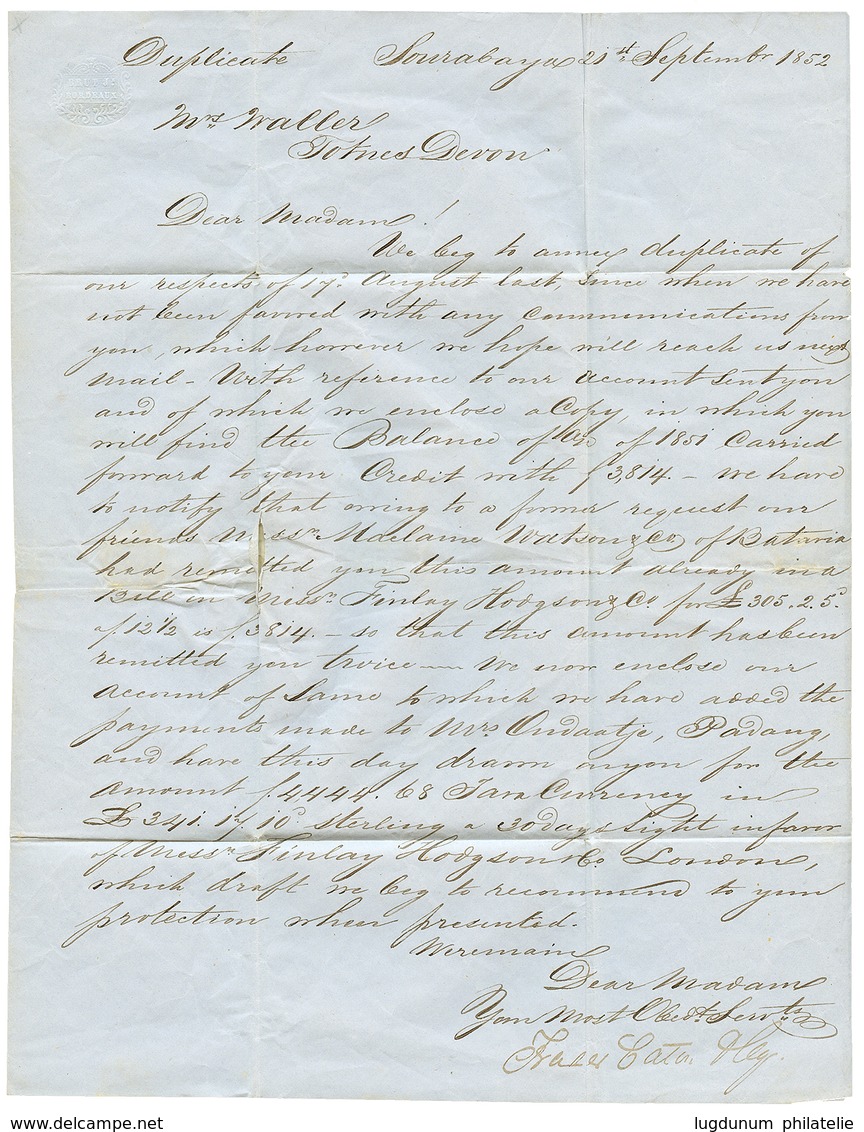 Duplicate Sourabaya 21st Septembr 1852
BORDEAUX
Mrs Waller
Totnes Devon
Dear Madam!
We beg to annex duplicate of
our respects of 17. August last, since when we have
not been favored with any communications from
you, which however we hope will reach us next
mail - With reference to our account sent you
and of which we enclose a Copy, in which you
will find the Balance of a/c of 1851 Carried
forward to your Credit with f3,814. - we have
to notify that owing to a former request our
friends Messrs Maclaine Watson & Co of Batavia
had remitted you this amount already in a
Bill on Messrs Finlay Hodgson & Co. for £305.2.5.
a f.12½ is f.3814. - so that this amount has been
remitted you twice — We now enclose our
Account of Same to which we have added the
payments made to Mrs Ondaatje, Padang,
and have this day drawn on you for the
amount f4444.68 Java Currency in
£341.17/10d. sterling a 30 days sight in favor
of Messrs Finlay Hodgson & Co. London,
which draft we beg to recommend to your
protection when presented.
We remain
Dear Madam
Your Most Obedt. Servts
Fraser Eaton & Cy.
lugdunum philatelie